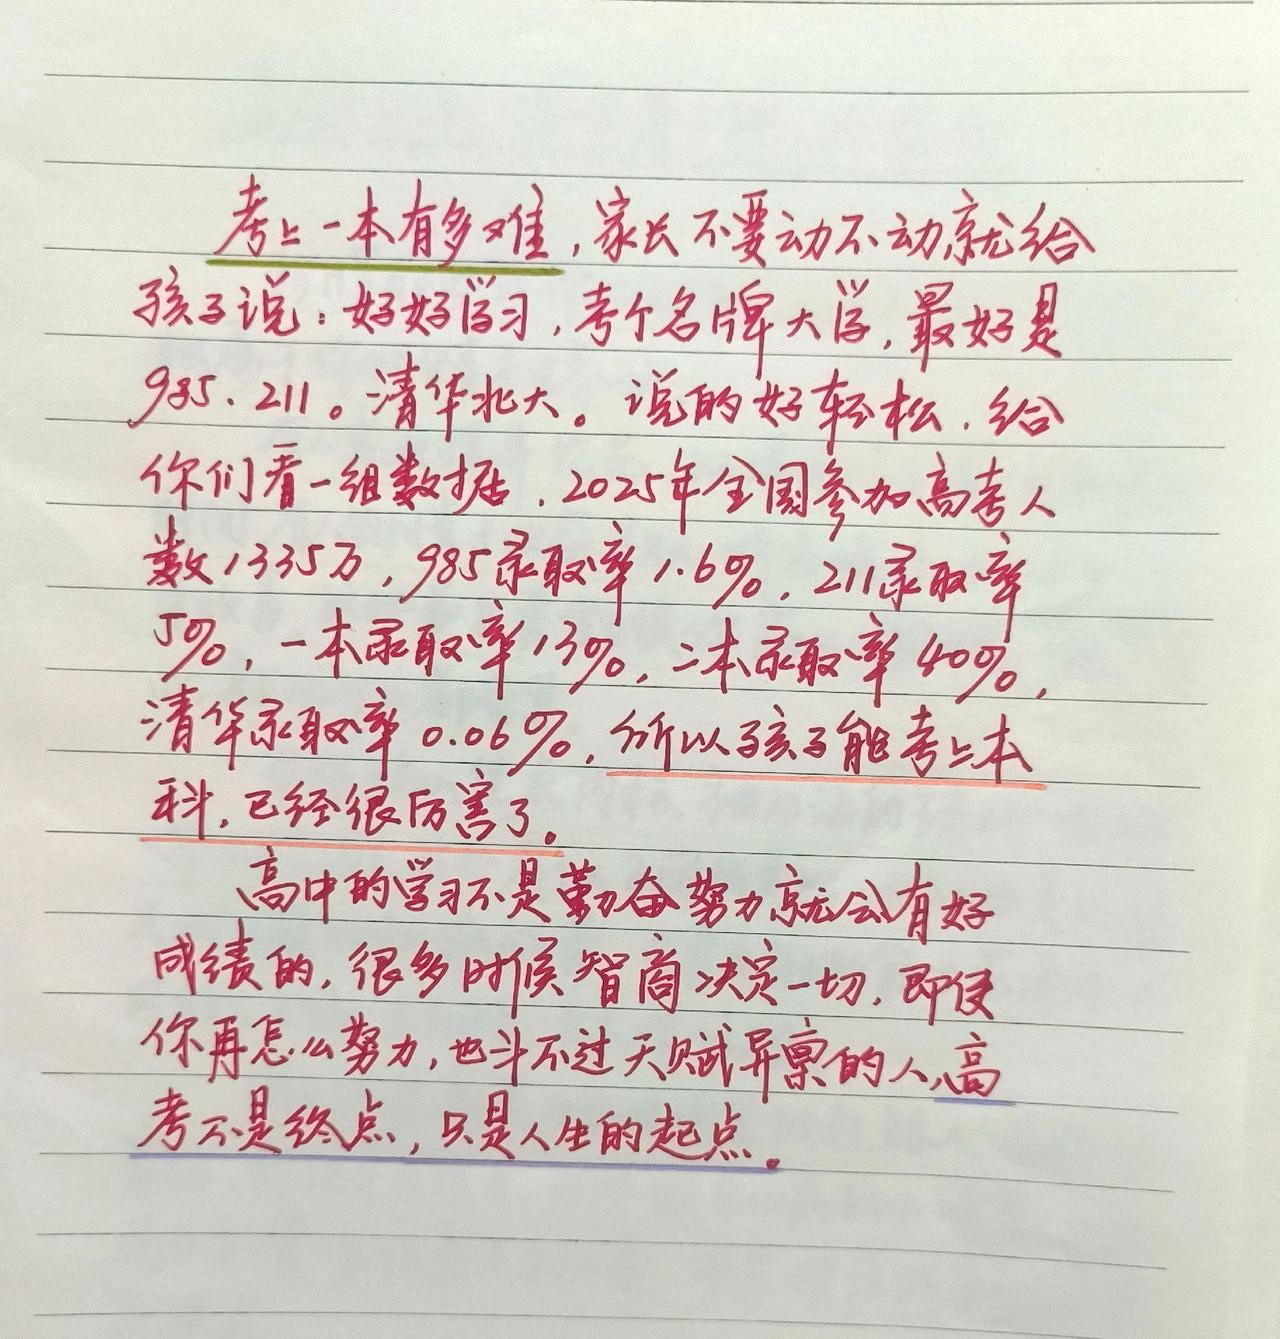 考上一本有多难，家长不要动不动就给
孩子说：好好学习，考个名牌大学，最好是
985、211。清华北大。说的好轻松，给
你们看一组数据，2025年全国参加高考人
数1335万，985录取率1.6%，211录取率
5%，一本录取率13%，二本录取率40%，
清华录取率0.06%，所以孩子能考上本
科，已经很厉害了。
高中的学习不是勤奋努力就会有好
成绩的，很多时候智商决定一切，即使
你再怎么努力，也斗不过天赋异禀的人，高
考不是终点，只是人生的起点。